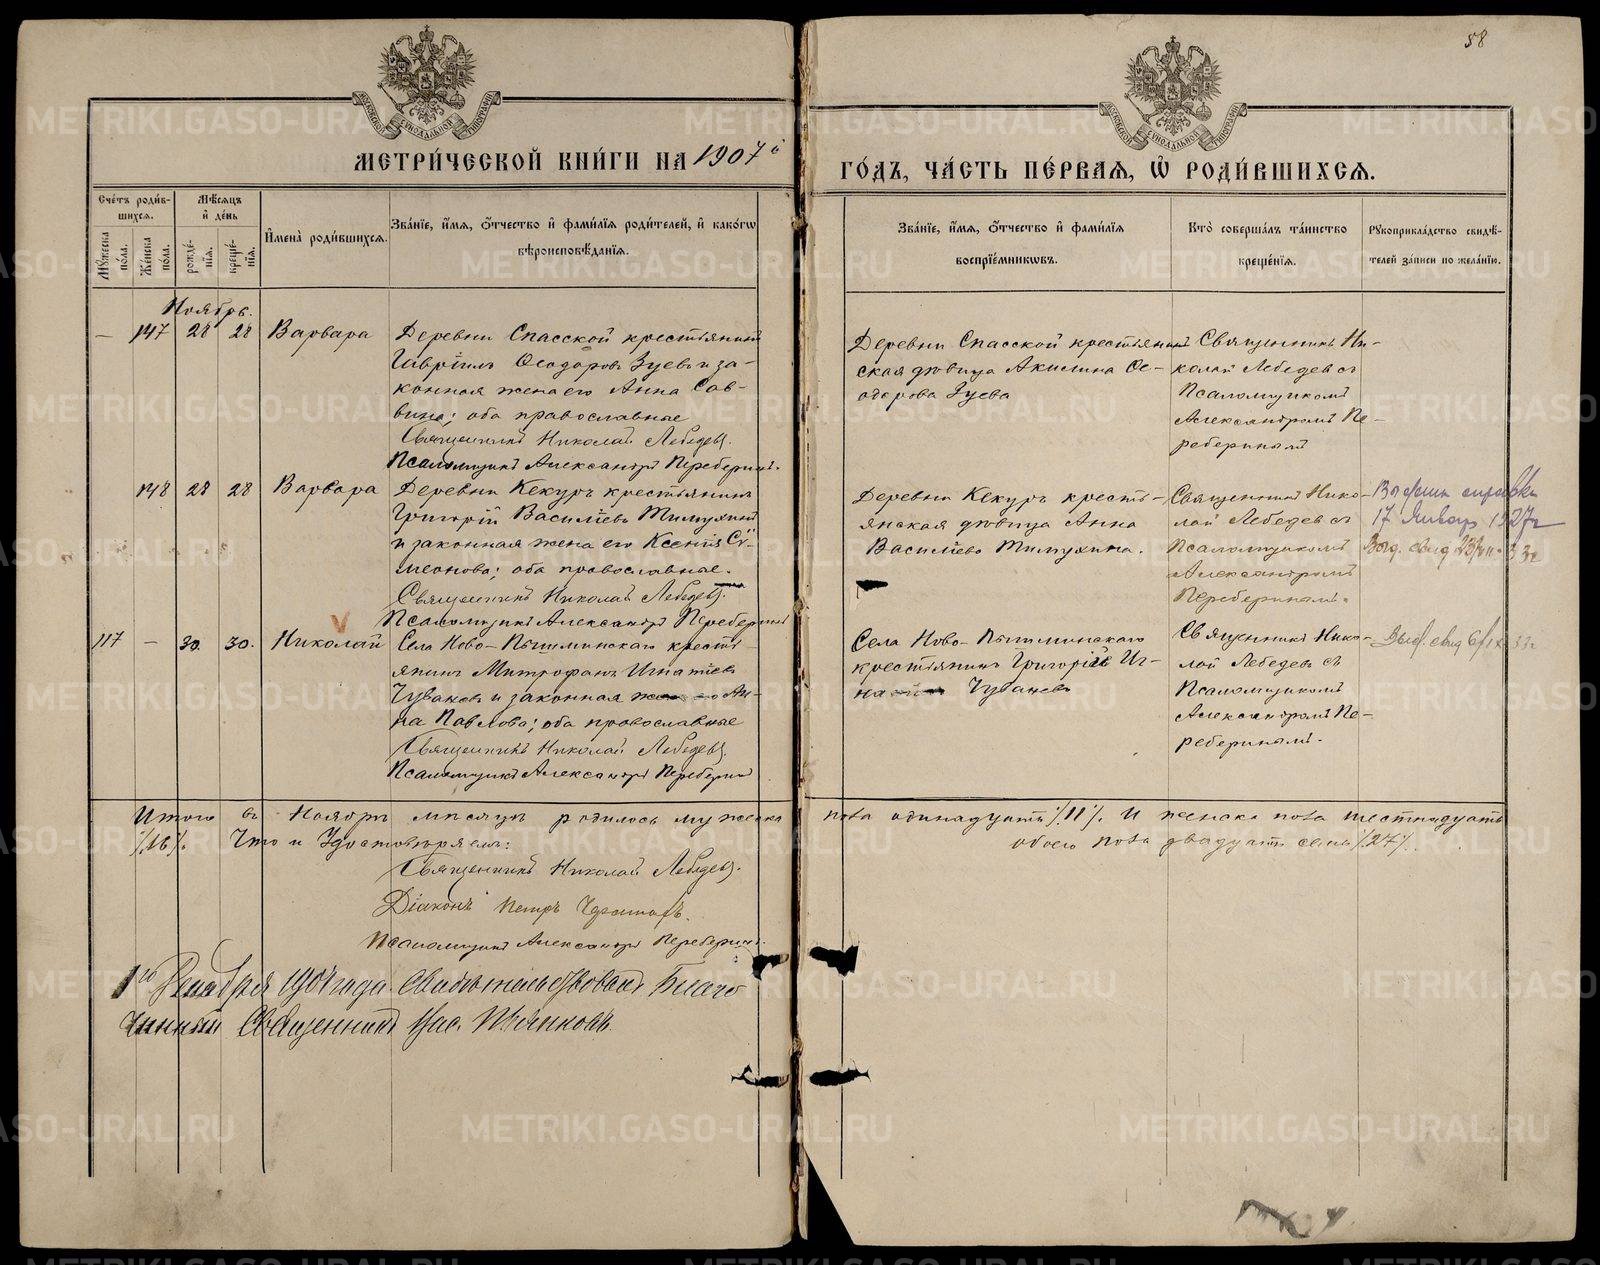 58
МОСКОВСКОЙ СѴНОДАЛЬНОЙ ТИПОГРАФІИ
МОСКОВСКОЙ СѴНОДАЛЬНОЙ ТИПОГРАФІИ
МЕТРИ́ЧЕСКОЙ КНИ́ГИ НА 1907й
ГО́ДЪ, ЧА́СТЬ ПЕ́РВАЯ, Ѡ РОДИ́ВШИХСЯ.
Сче́тъ роди́в-
шихся.
Мꙋ́жеска по́ла.
Же́нска по́ла.
Мѣ́сяцъ и҆ де́нь
рожде́нїя.
креще́нїя.
И҆мена̀ роди́вшихся.
Зва́нїе, и҆́мя, ѻ҆́тчество и҆ фами́лїя роди́телей, и҆ како́гѡ
вѣроисповѣ́данїя.
Зва́нїе, и҆́мя, ѻ҆́тчество и҆ фами́лїя
воспрїе́мникѡвъ.
Кто̀ соверша́лъ та́инство
креще́нїя.
Рꙋкоприкла́дство свидѣ́-
телей за́писи по жела́нїю.
Ноябрь.
— 147 28 28 Варвара
Деревни Спасской крестьянинъ
Гавріилъ Ѳеодоровъ Зуевъ и за-
конная жена его Анна Сав-
вина; оба православные
Священникъ Николай Лебедевъ.
Псаломщикъ Александръ Переберинъ.
Деревни Спасской крестьян
ская дѣвица Акилина Ѳе-
одорова Зуева
Священникъ Ни-
колай Лебедев съ
Псаломщикомъ
Александромъ Пе-
реберинымъ
148 28 28 Варвара
Деревни Кекуръ крестьянинъ
Григорій Васильевъ Тимухинъ
и законная жена его Ксенія Си-
меонова; оба православные.
Священникъ Николай Лебедевъ.
Псаломщикъ Александръ Переберинъ
Деревни Кекуръ кресть-
янская дѣвица Анна
Васильева Тимухина.
Священникъ Нико-
лай Лебедев съ
Псаломщикомъ
Александромъ
Переберинымъ.
17 Января 1927г
117 — 30. 30. Николай
Села Ново-Пышминскаго кресть-
янинъ Митрофанъ Игнатіевъ
Чувашевъ и законная жена его Ан-
на Павлова; оба православные
Священникъ Николай Лебедевъ.
Псаломщикъ Александръ Переберинъ
Села Ново-Пышминскаго
крестьянинъ Григорій Иг-
натіевъ Чувашевъ
Священникъ Нико-
лай Лебедев съ
Псаломщикомъ
Александромъ Пе-
реберинымъ.
Итого въ Ноябрѣ мѣсяцѣ родилось мужска пола одинадцать /11/. И женска пола шестнадцать
/16/. Что и удостовѣряемъ: обоего пола двадцать семь /27/.
Священникъ Николай Лебедевъ.
Діаконъ Петръ
Псаломщикъ Александръ Переберинъ.
Декабря 1907 года Свидѣтельствовалъ Благо
чинный Священникъ
METRIKI.GASO-URAL.RU